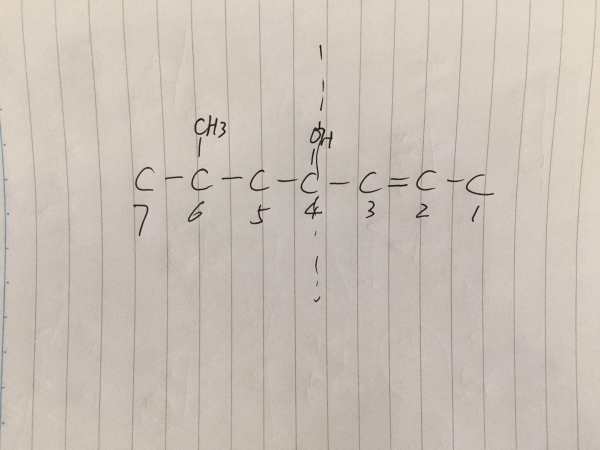 CH3 OH
C - C - C - C - C = C - C
7 6 5 4 3 2 1